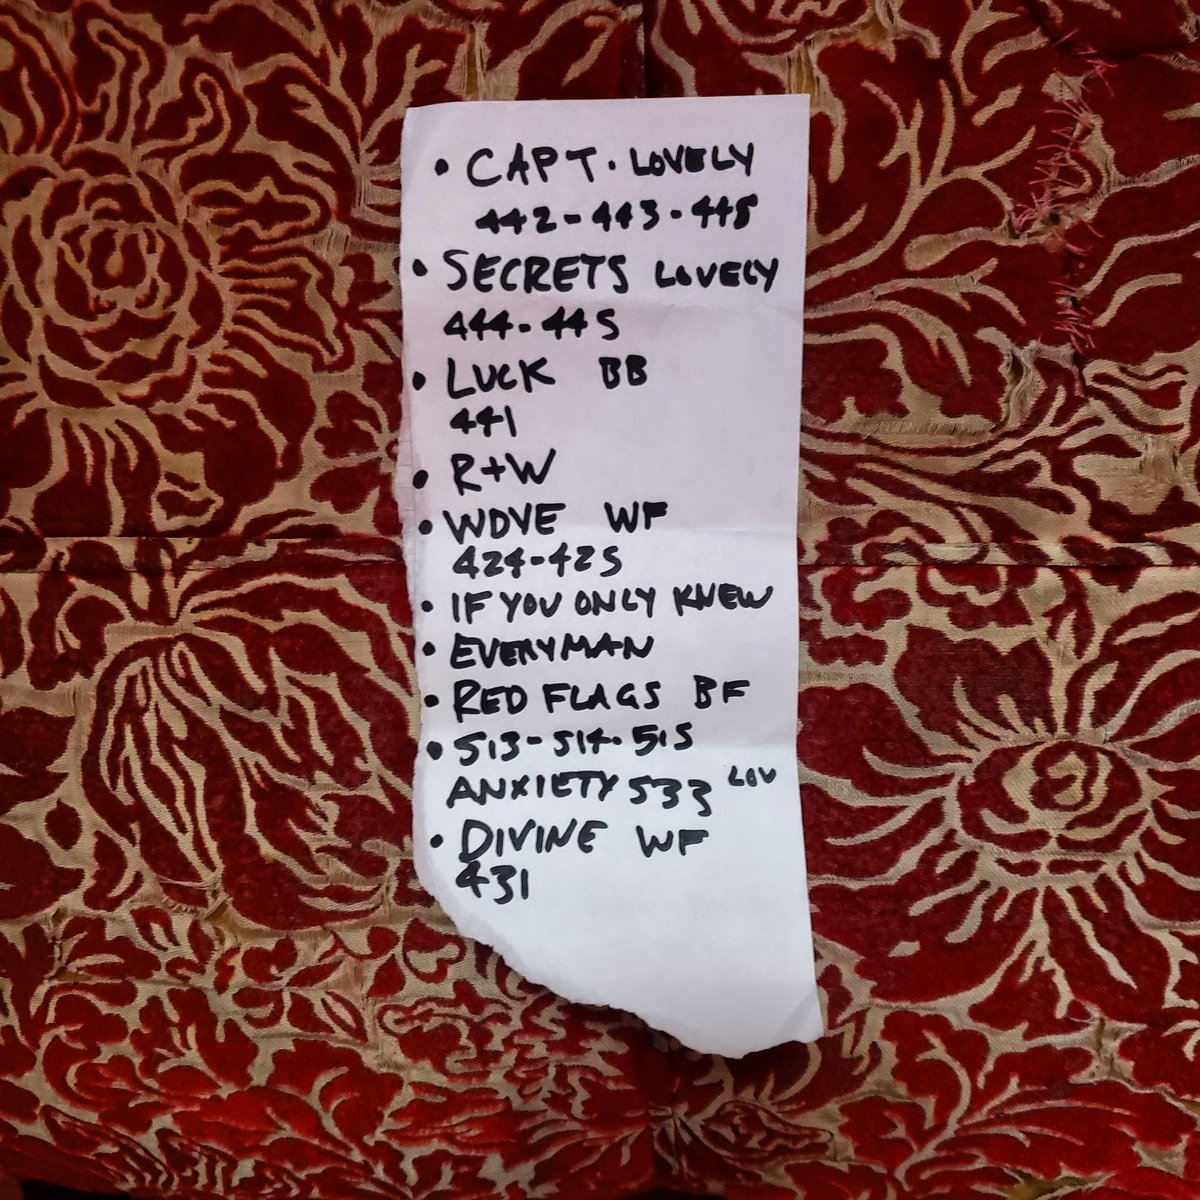 • CAPT. LOVELY
442-443-445
• SECRETS LOVELY
444-445
• LUCK BB
441
• R+W
• WDYE WF
424-425
• IF YOU ONLY KNEW
• EVERYMAN
• RED FLAGS BF
• 513-514-515
ANXIETY 533 LOV
• DIVINE WF
431